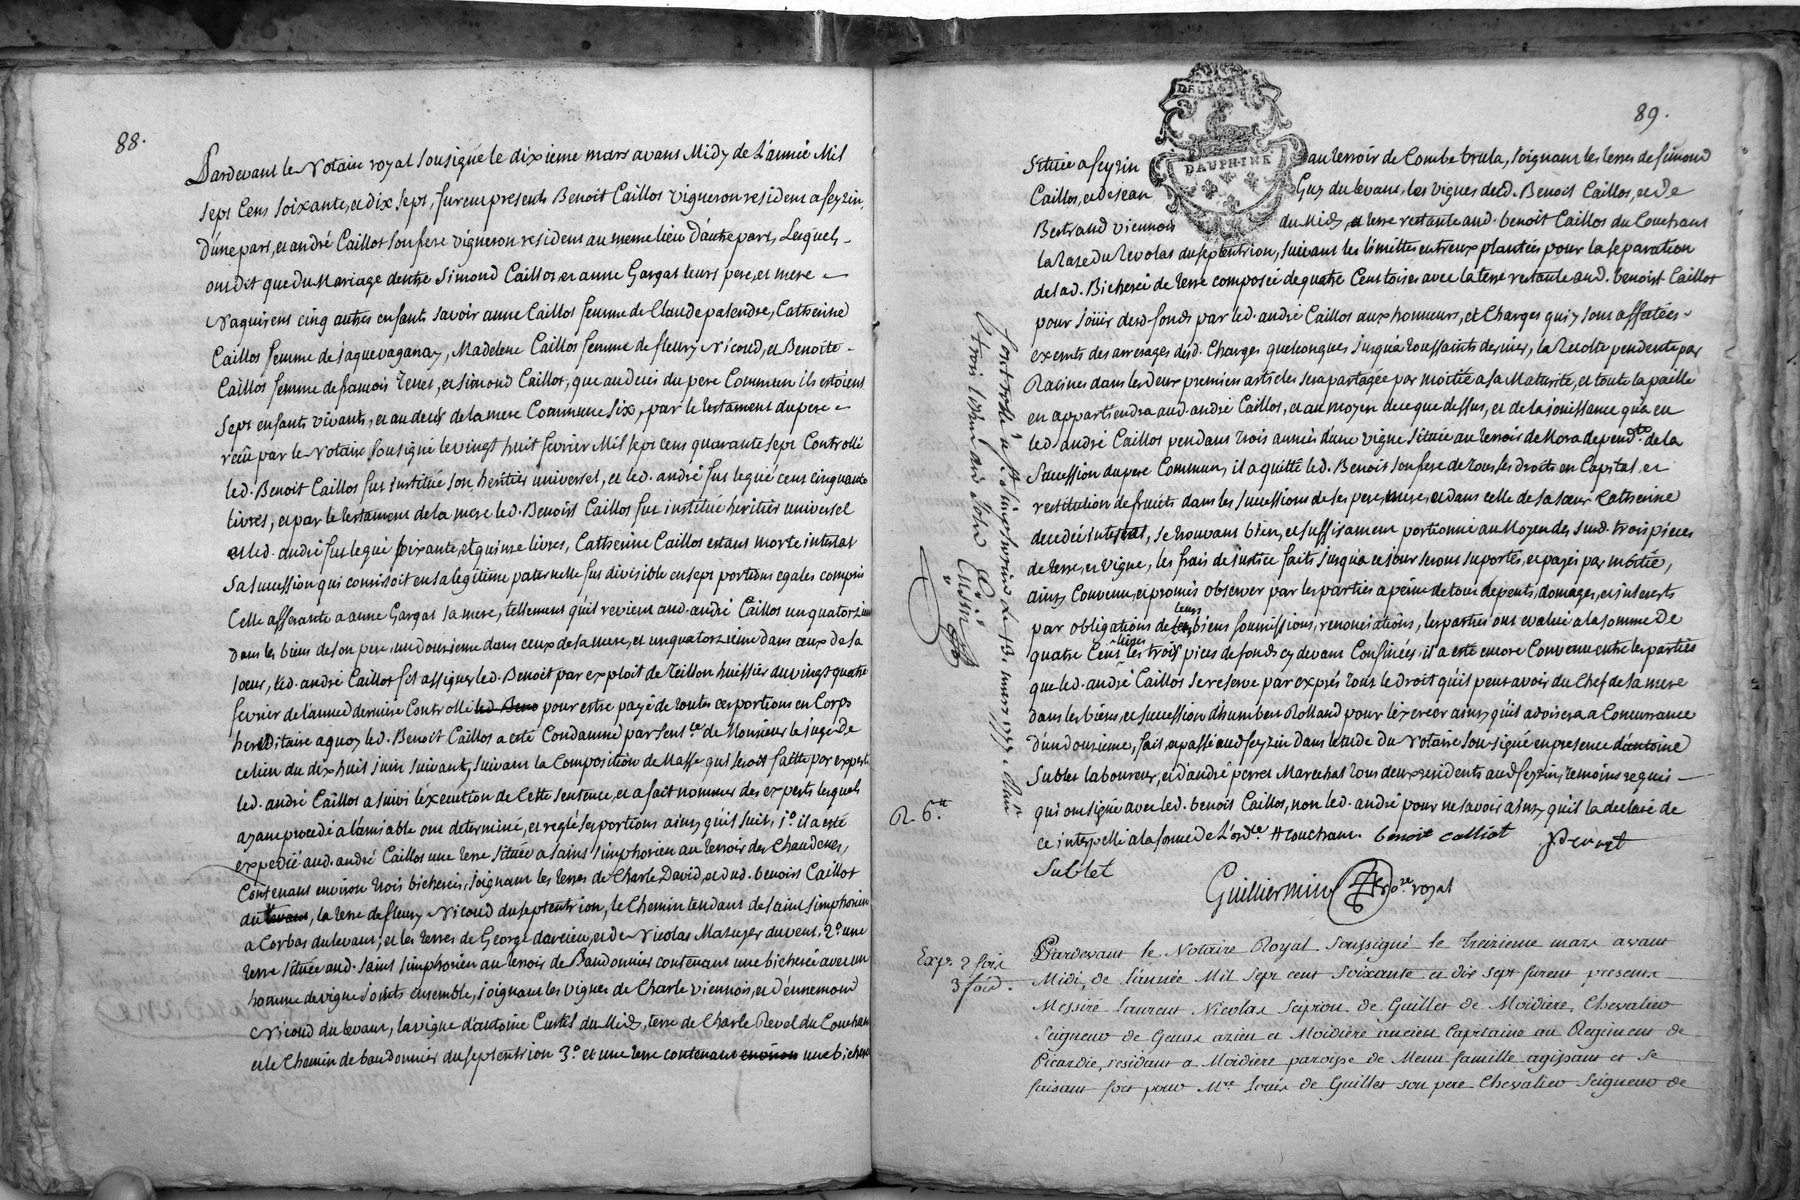 88.
Pardevant le Notaire royal sousigné le dixieme mars avant Midy de L'année Mil
sept Cens soixante, et dix sept, furent presents Benoit Caillot vigneron resident a feyzin,
D'une part, et andré Caillot son frere vigneron resident au meme lieu D'autre part, Lesquels
ont dit que du Mariage dentre Simond Caillot et anne Gargat leurs pere, et mere
Naquirent cinq autres enfants savoir anne Caillot femme de Claude palendre, Catherine
Caillot femme de jaque vaganay, Madelene Caillot femme de fleury Nicoud, et Benoite
Caillot femme de francois Tenet, et simond Caillot, que au deces du pere Commun ils estoient
sept enfants vivants, et au deces de la mere Commune six, par le testament du pere
receu par le Notaire sousigné le vingt huit fevrier Mil sept cens quarante sept Controllé
led. Benoit Caillot fut institué son heritier universel, et led. andré fut legué cent cinquante
livres, et par le testament de la mere led. Benoist Caillot fut institué héritier universel
et led. andré fut legué soixante, et quinse livres, Catherine Caillot estant morte intestat
sa succession qui consistoit en sa légitime paternelle fut divisible en sept portions egales compris
Celle afferante a anne Gargat sa mere, tellement qu'il revient aud. andré Caillot un quatorzieme
dans les biens de son pere, un douzieme dans ceux de sa mere, et un quatorzieme dans ceux de sa
soeur, led. andré Caillot fit assigner led. Benoit par exploit de Teillon huissier du vingt quatre
fevrier de l'année derniere Controllé led Beno pour estre payé de toutes ces portions en Corps
hereditaire a quoy led. Benoit Caillot a esté Condamné par sent.ce de Monsieur le juge de
ce lieu du dix huit juin suivant, suivant la Composition de Masse qui seroit faitte par experts
led. andré Caillot a suivi l'éxecution de Cette sentence, et a fait nommer des experts lesquels
ayant procedé a l'amiable ont determiné, et reglé ses portions ainsy qu'il suit, 1.° il a esté
expedié aud. andré Caillot une terre située a saint simphorien au terroir des Chaudenes,
Contenant environ trois bicherées, joignant les terres de Charle David, et dud. benoist Caillot
du levant, la terre de fleury Nicoud du septentrion, le Chemin tendant de saint simphorien
a Corbas du levant, et les terres de George darcieu, et de Nicolas Mazuyer du vent, 2.° une
terre située aud. saint simphorien au terroir de Baudonnier contenant une bicherée avec un
homme de vigne joints ensemble, joignant les vignes de Charle viennois, et d'énnemond
Nicoud du levant, la vigne d'antoine Curtil du Midy, terre de Charle Revol du Couchant
et le Chemin de baudonnier du septentrion 3.° et une terre contenant environ une bicheré
89.
DAUPHINE
Située a feyzin au terroir de Combe brula, joignant les terres de simond
Caillot, et de jean Guy du levant, les vignes dud. Benoit Caillot, et de
Bertrand viennois du Midy, et terre restante aud. benoit Caillot du Couchant
la raze du Revolat du septentrion, suivant les limittes entreux plantées pour la separation
de lad. Bicherée de terre composée de quatre Cens toises avec la terre restante aud. benoist Caillot
pour jöuir desd. fonds par led. andré Caillot aux honneurs, et Charges qui y sont affectées
exempts des arrerages desd. Charges quelconques jusqu'a toussaints dernier, la Recolte pendente par
Racines dans les deux premiers articles sera partagée par moitié a sa Maturité, et toute la paille
en appartiendra aud. andré Caillot, et au moyen de ce que dessus, et de la jouissance qu'a eu
led. andré Caillot pendant trois années d'une vigne située au terroir de Mora depend.te de la
Succession du pere Commun, il a quitté led. Benoit son frere de tous ses droits en Capital, et
restitution de fruits dans les successions de ses pere, mere, et dans celle de sa soeur Catherine
decedée intestat, se trouvant bien, et suffisament portionné au Moyen des susd. trois pieces
de terre, et vigne, les frais de justice faits jusqu'a ce jour seront suportés, et payés par moitié,
ainsy Convenu, et promis observer par les parties a peine de tous depents, domages, et interests
par obligations de leurs biens soumissions, renonciations, les parties ont evalué a la somme de
quatre Cens livres les trois pieces de fonds cy devant Confinées. il a esté encore Convenu entre les parties
que led. andré Caillot se reserve par exprés tous le droit qu'il peut avoir du Chef de sa mere
dans les biens, et succession d'humbert Rolland pour l'éxercer ainsy qu'il advisera a Concurrance
d'un douzieme, fait, et passé aud. feyzin dans l'etude du Notaire sousigné en presence d'antoine
Sublet laboureur, et d'andré perret Marechal tous deux residents aud. feyzin, temoins requis
qui ont signé avec led. benoit Caillot, non led. andré pour ne savoir ainsy qu'il la declaré de
ce interpellé a la forme de L'ord.ce # couchant. benoit calliot
Sublet
Guilliermin no.re royal
R. 6.tt
Controllé a St simphorien Le 13. mars 1777.
Exp. 2 fois
3 fois.
Pardevant le Notaire Royal soussigné le treizieme mars avant
Midi, de l'année Mil sept cent soixante et dix sept furent presents
Messire Laurent Nicolas Scipion de Guillet de Moidiere, Chevalier
Seigneur de et Moidiere ancien Capitaine au Regiment de
Picardie, résidant a Moidiere paroisse de Menu famille agissant et se
faisant fort pour M.re Louis de Guillet son pere Chevalier Seigneur de